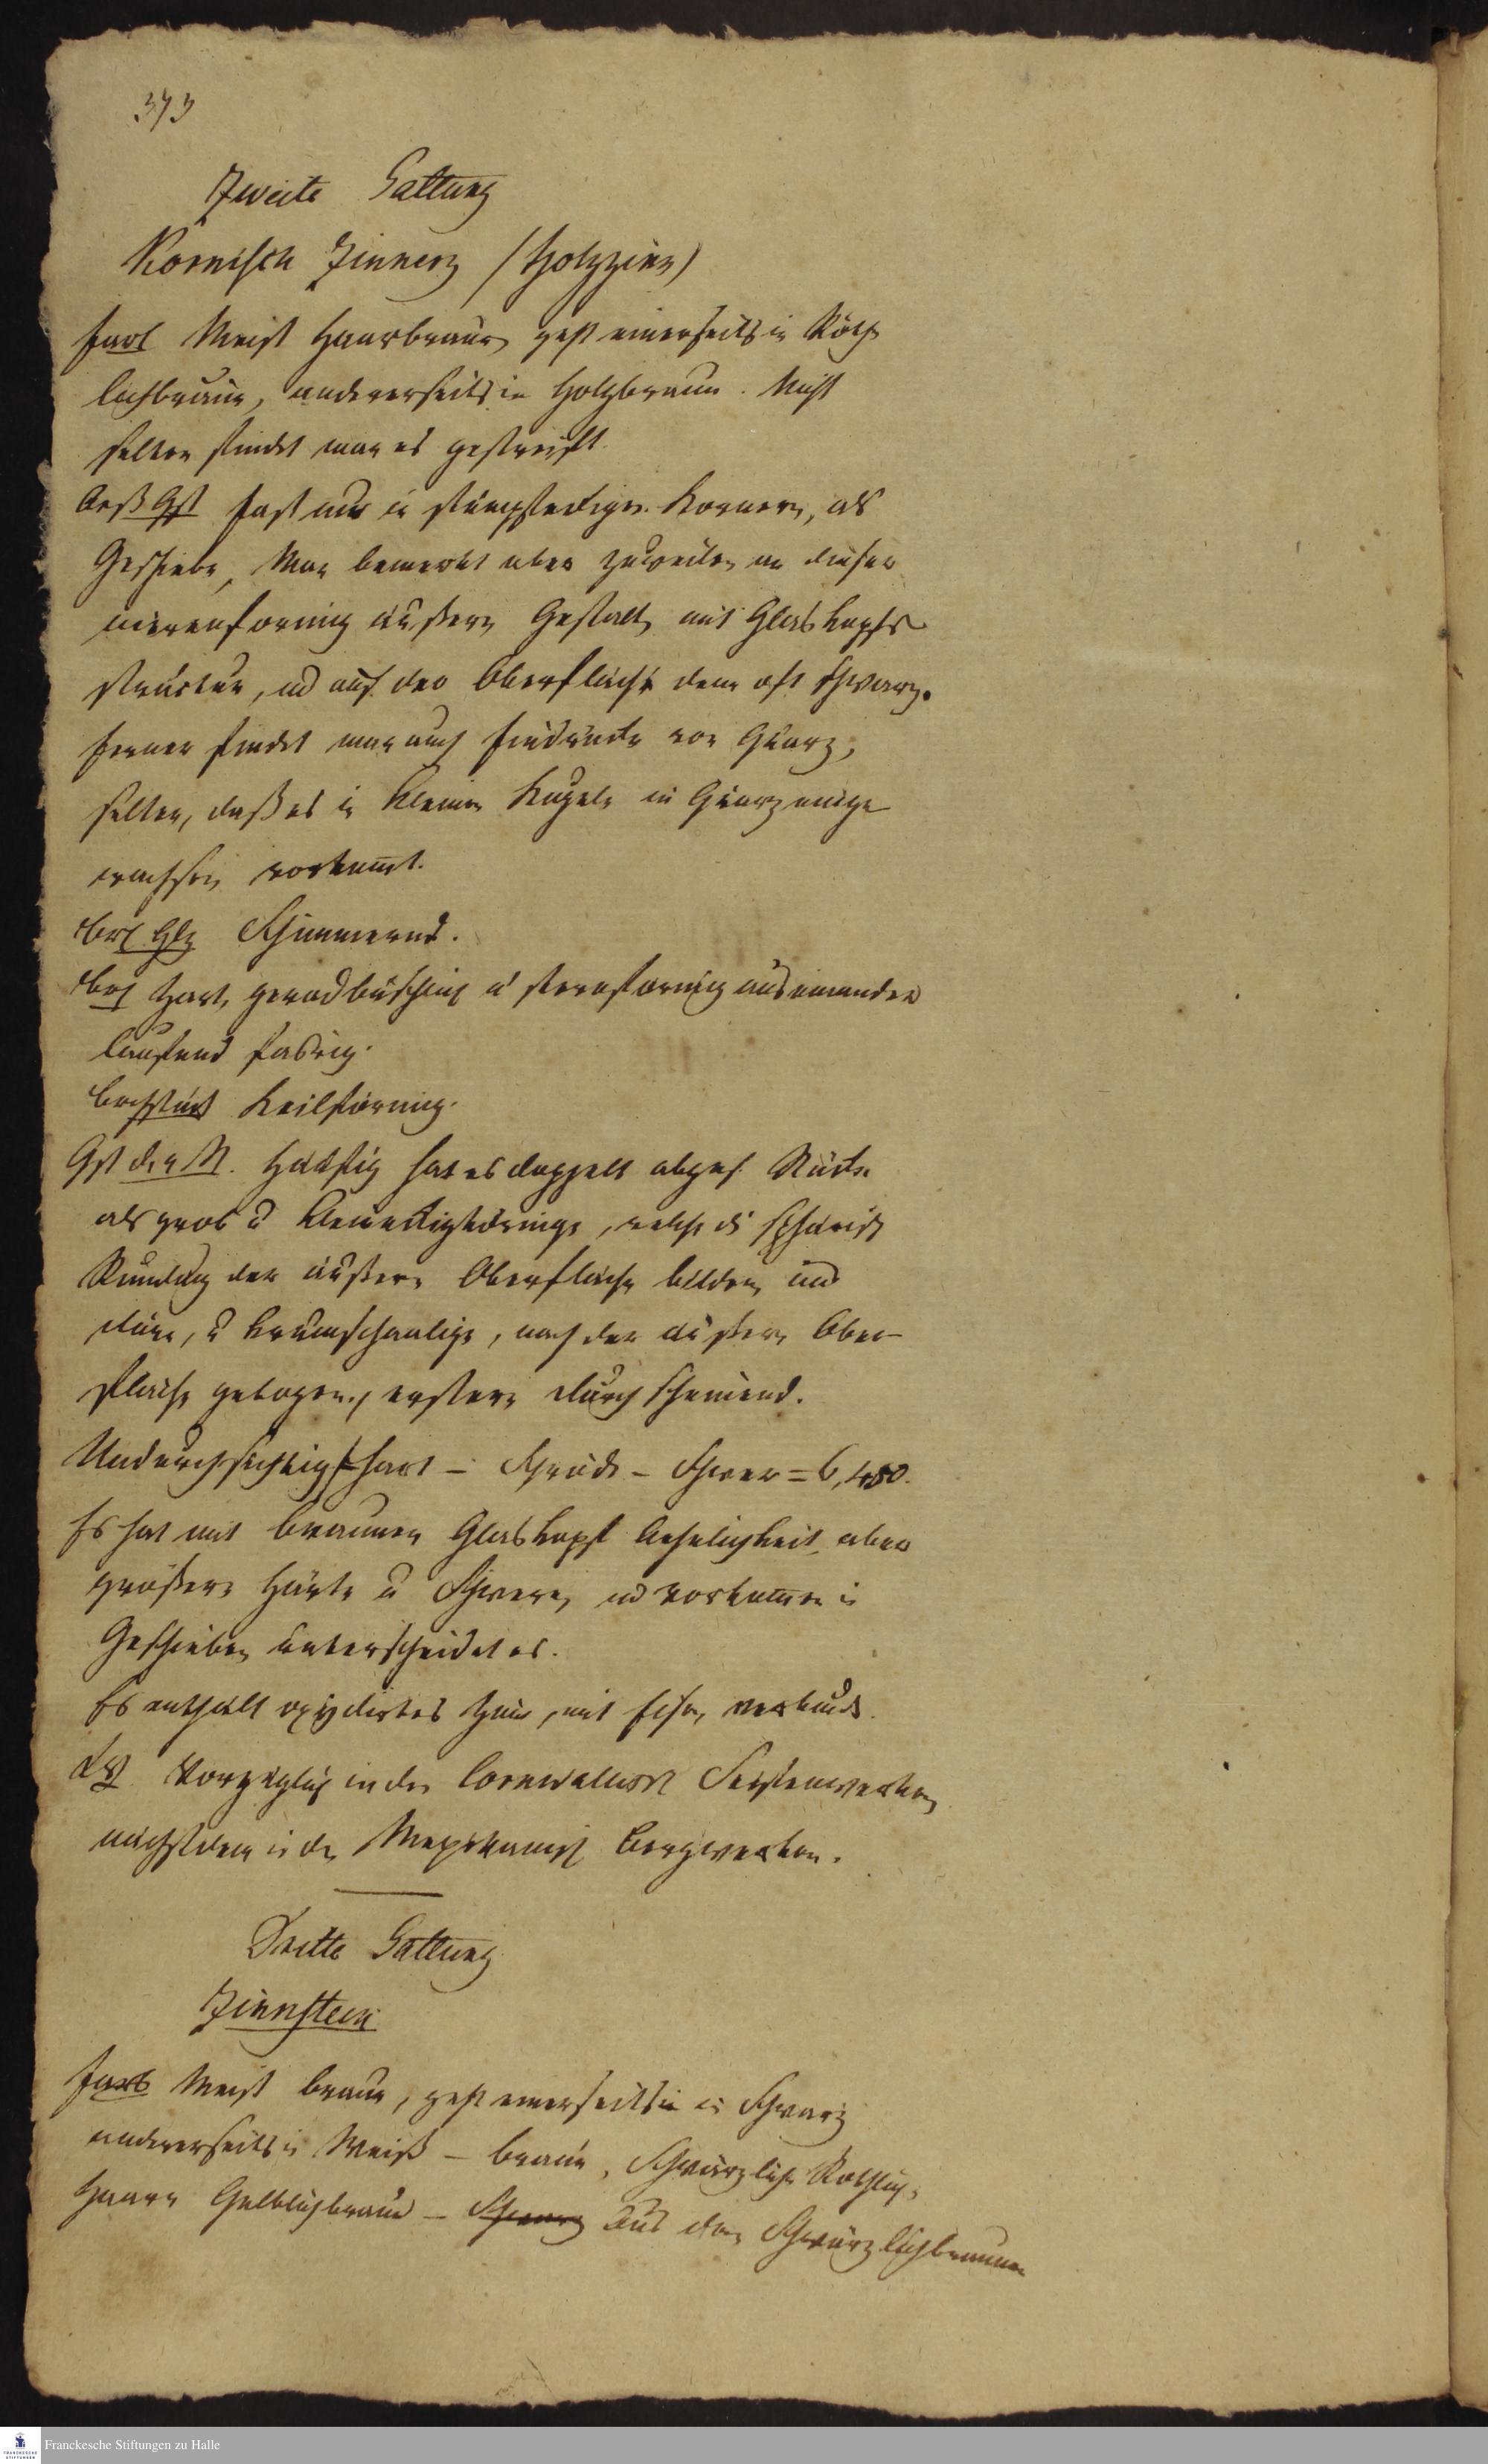 373
Zweite Gattung
Kornisch Zinnerz /Holzzinn)
Farb Meist Haarbraun, geht einerseits in Röth-
lichbraun, andererseits in Holzbraun. Nicht
selten findet man es gestreift.
Aeß Gst fast nur in stumpfeckigen Kornern, als
Geschiebe, Man bemerkt aber zuweilen an diesen
nierenformig äußern Gestalt, mit Glaskopfs
structur, und auf der Oberfläche denn oft schwarz.
Ferner findet man auch Eindrücke von Quarz,
selten, daß es in kleinen Kugeln in Quarz einge
wachsen vorkommt.
Brl Glz Schimmernd.
Brch Zart, geradbüschlich u sternförmig auseinander
laufend fasrig.
Brchstück Keilförmig.
Gst der M. Häufig hat es doppelt abges. Stücke
als grob u kleineckigkörnige, welche die sphärisch
Rundung der äußern Oberfläche bilden, und
dünn, u krumschaalige, nach der äußern Ober-
fläche gebogen, erstere durchscheinend.
Undurchsichtig hart – Spröde – Schwer = 6,450.
Es hat mit braunen Glaskopf Aehnlichkeit, aber
größere Härte u Schwere, und vorkommen in
Geschieben unterscheidet es.
Es enthält oxydirtes Zinn, mit Eisen verbunden.
Vorzüglich in den Cornwallisch Seifenwerken,
nächstdem in den Mexikanisch Bergwerken.
Dritte Gattung
Zinnstein
Farb Meist braun, geht einerseits in Schwarz
andererseits in Weiß – braun, Schwärzlich Röthlich,
Haar, Gelblichbraun – Schwarz Aus dem Schwärzlichbraunen
Franckesche Stiftungen zu Halle